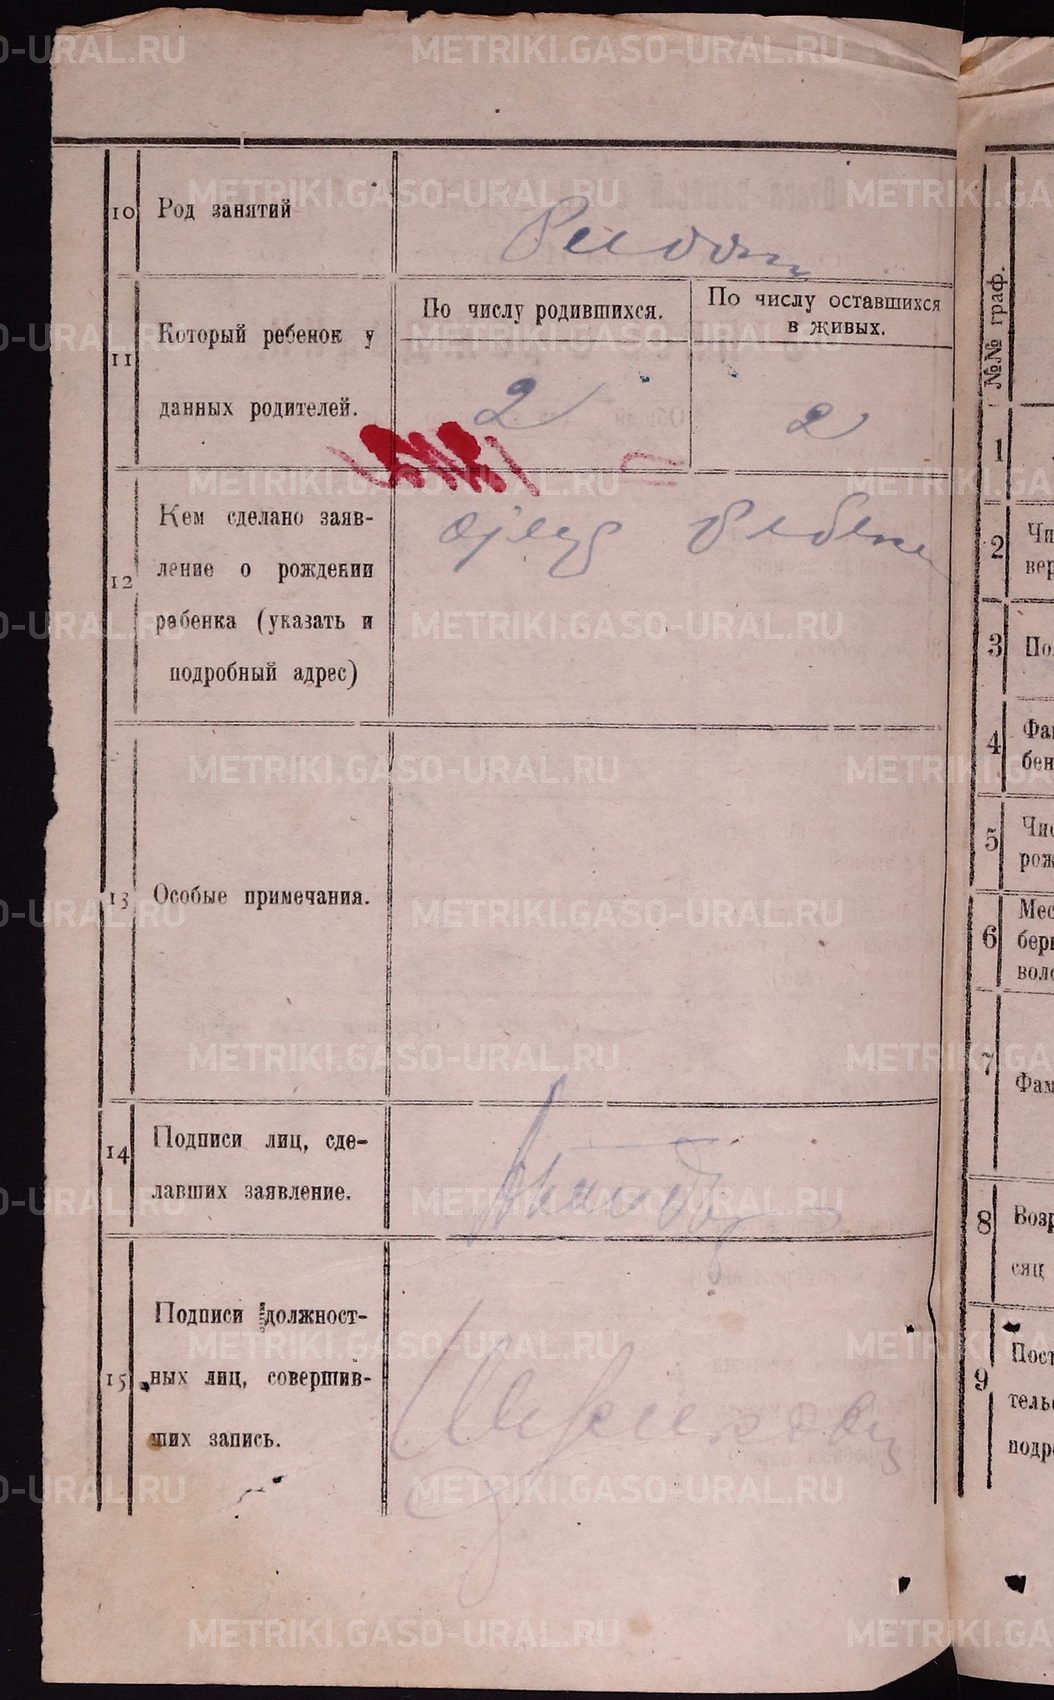 METRIKI.GASO-URAL.RU
10 Род занятий
11 Который ребенок у
данных родителей.
По числу родившихся.
По числу оставшихся
в живых.
2
2
12 Кем сделано заяв-
ление о рождении
ребенка (указать и
подробный адрес)
отец ребенка
13 Особые примечания.
14 Подписи лиц, сде-
лавших заявление.
15 Подписи должност-
ных лиц, совершив-
ших запись.
№№ граф.
1
2 Чи
вер
3 По
4 Фа
бен
5 Чис
рож
6 Мес
бер
воло
7 Фам
8 Возр
сяц
9 Пост
тель
подр